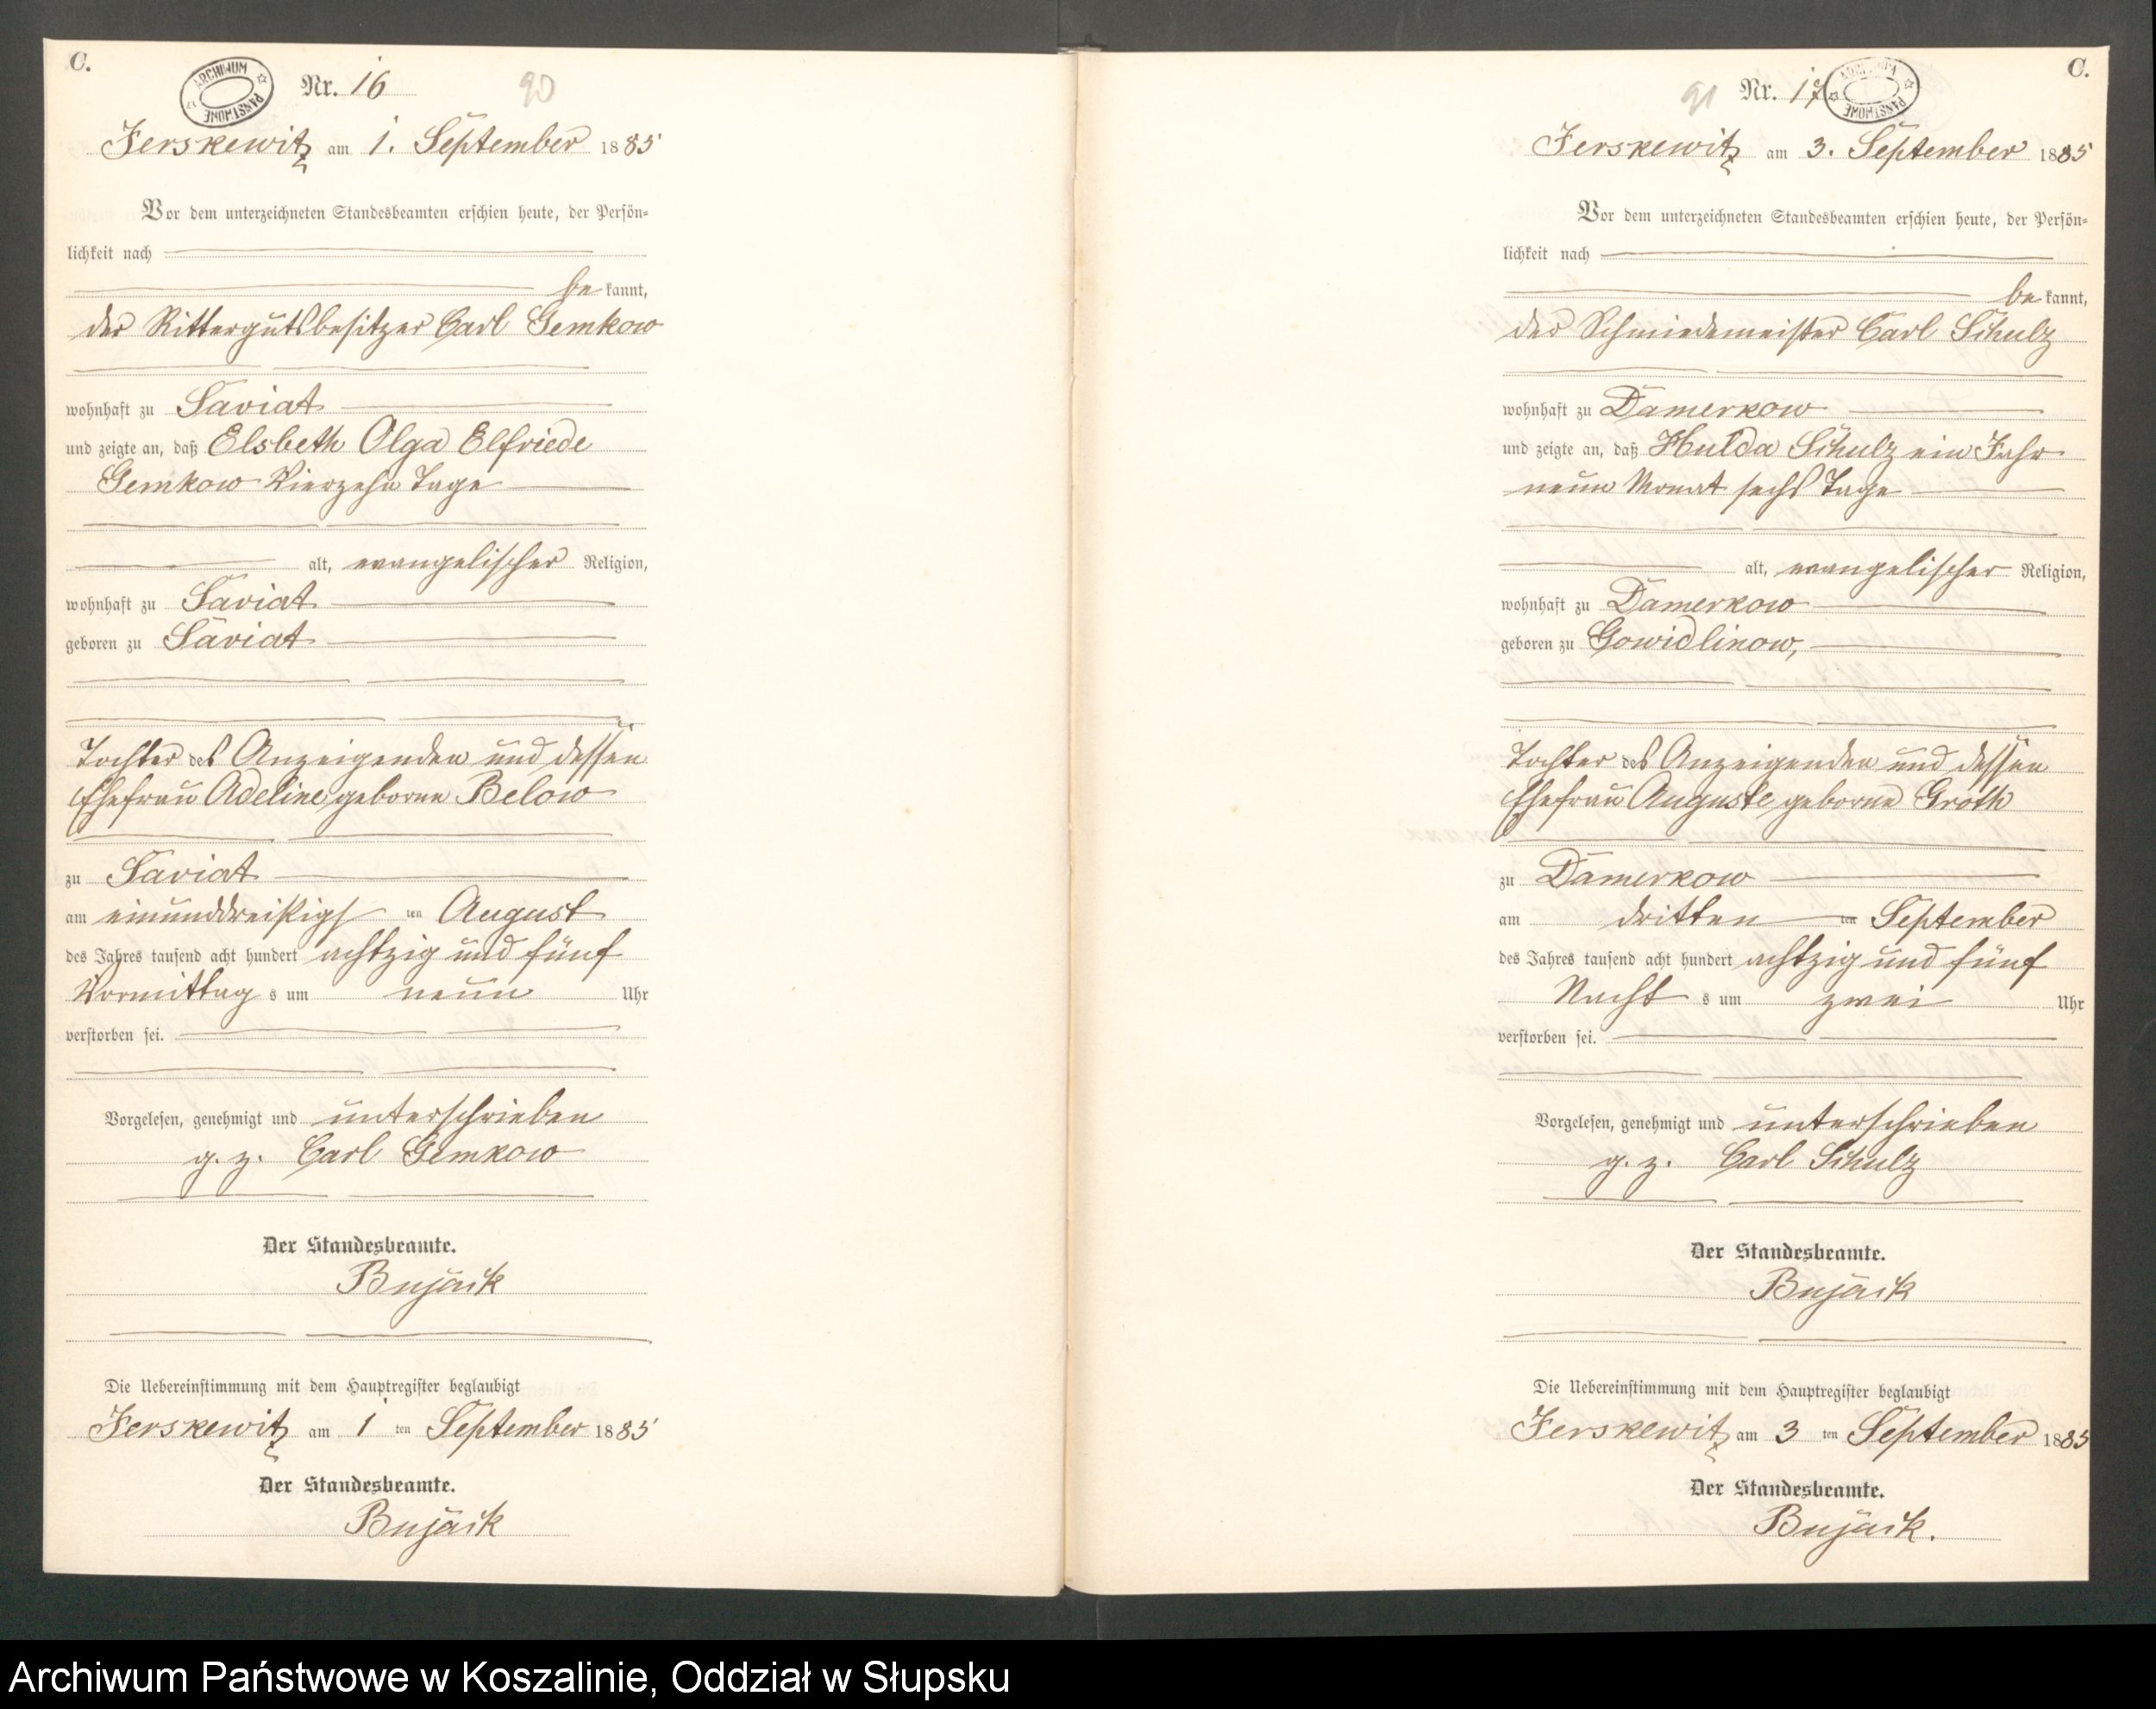 C.
ARCHIWUM PAŃSTWOWE
Nr. 16
90
Jerskewitz am 1. September 1885
Vor dem unterzeichneten Standesbeamten erschien heute, der Persön-
lichkeit nach
be kannt,
der Rittergutsbesitzer Carl Gemkow
wohnhaft zu Saviat
und zeigte an, daß Elsbeth Olga Elfriede
Gemkow Vierzehn Tage
alt, evangelischer Religion,
wohnhaft zu Saviat
geboren zu Saviat
Tochter des Anzeigenden und dessen
Ehefrau Adeline geborne Below
zu Saviat
am einunddreißigs ten August
des Jahres tausend acht hundert achtzig und fünf
Vormittag s um neun Uhr
verstorben sei.
Vorgelesen, genehmigt und unterschrieben
g. z. Carl Gemkow
Der Standesbeamte.
Bujack
Die Uebereinstimmung mit dem Hauptregister beglaubigt
Jerskewitz am 1 ten September 1885
Der Standesbeamte.
Bujack
C.
91
Nr. 17
Jerskewitz am 3. September 1885
Vor dem unterzeichneten Standesbeamten erschien heute, der Persön-
lichkeit nach
be kannt,
der Schmiedemeister Carl Schulz
wohnhaft zu Damerkow
und zeigte an, daß Hulda Schulz ein Jahr
neun Monat sechs Tage
alt, evangelischer Religion,
wohnhaft zu Damerkow
geboren zu Gowidlinow,
Tochter des Anzeigenden und dessen
Ehefrau Auguste geborne Groth
zu Damerkow
am dritten ten September
des Jahres tausend acht hundert achtzig und fünf
Nacht s um zwei Uhr
verstorben sei.
Vorgelesen, genehmigt und unterschrieben
g. z. Carl Schulz
Der Standesbeamte.
Bujack
Die Uebereinstimmung mit dem Hauptregister beglaubigt
Jerskewitz am 3 ten September 1885
Der Standesbeamte.
Bujack.
Archiwum Państwowe w Koszalinie, Oddział w Słupsku